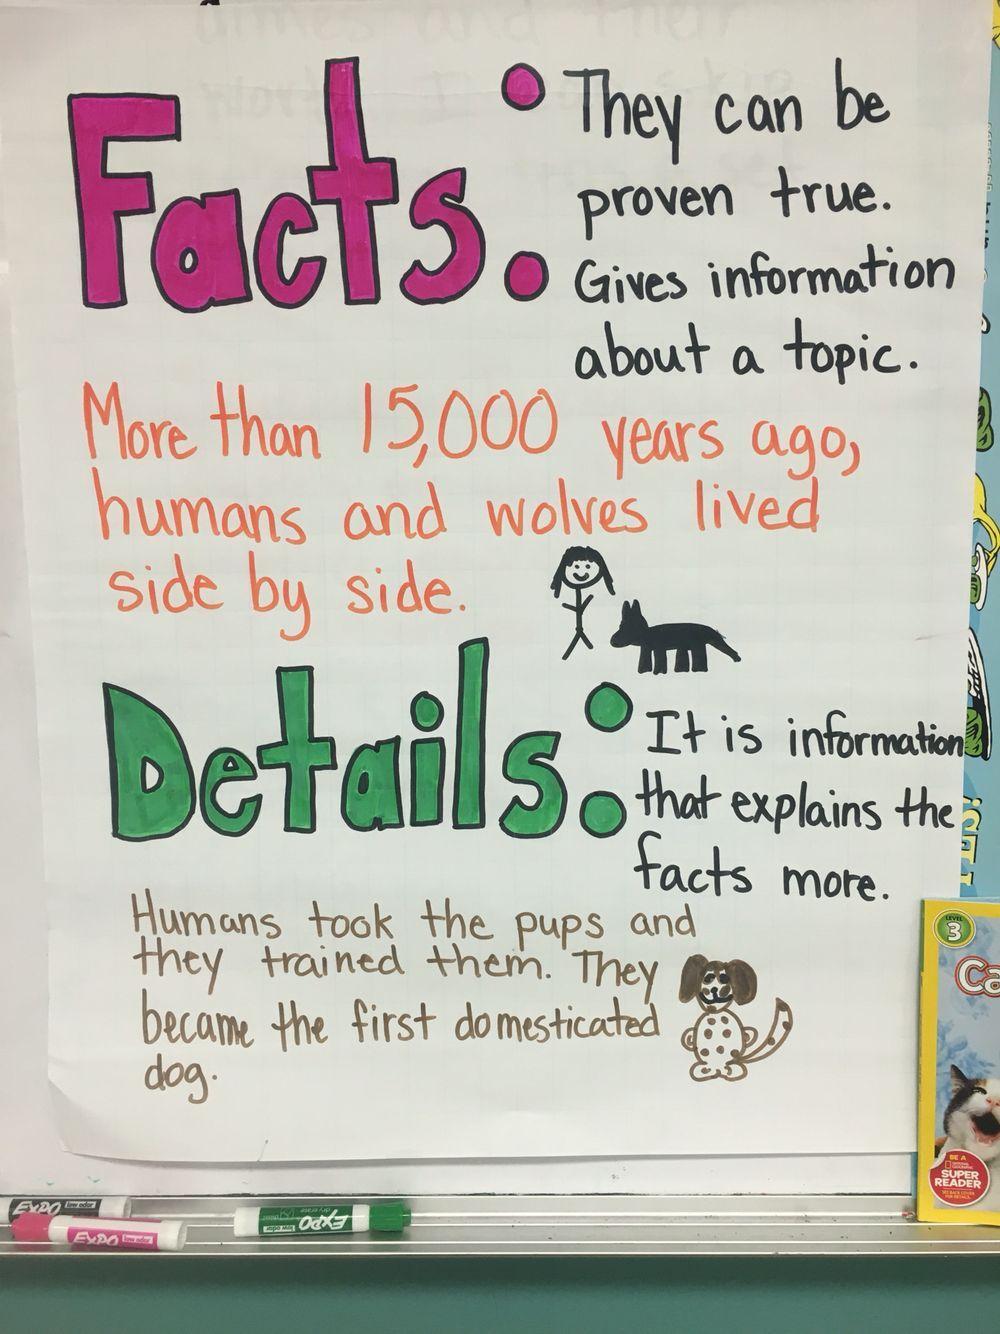 Facts:
They can be
proven true.
Gives information
about a topic.
More than 15,000 years ago,
humans and wolves lived
side by side.
Details:
It is information
that explains the
facts more.
Humans took the pups and
they trained them. They
became the first domesticated
dog.
LEVEL
3
Ca
BE A
NATIONAL GEOGRAPHIC
SUPER
READER
SEE BACK COVER
FOR DETAILS.
EXPO low odor
EXPO low odor
EXPO low odor dry erase